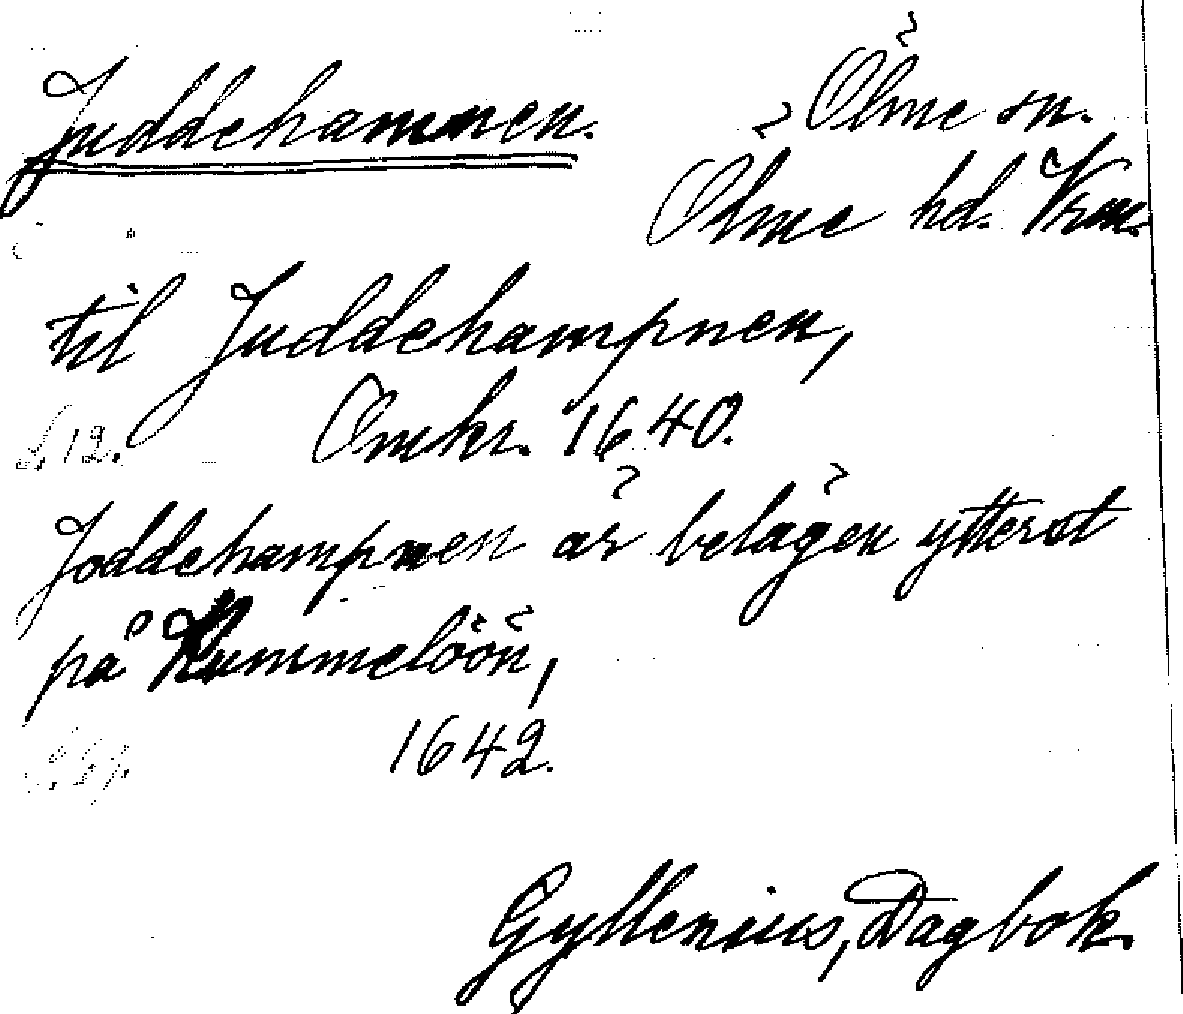 Juddehamnen. Ölme sn.
Ölme hd. Vrm.
til Juddehampnen,
s. 12. Omkr. 1640.
Joddehampnen är belägen ytterst
på Kummelöön,
1642.
Gyllenius, Dagbok.